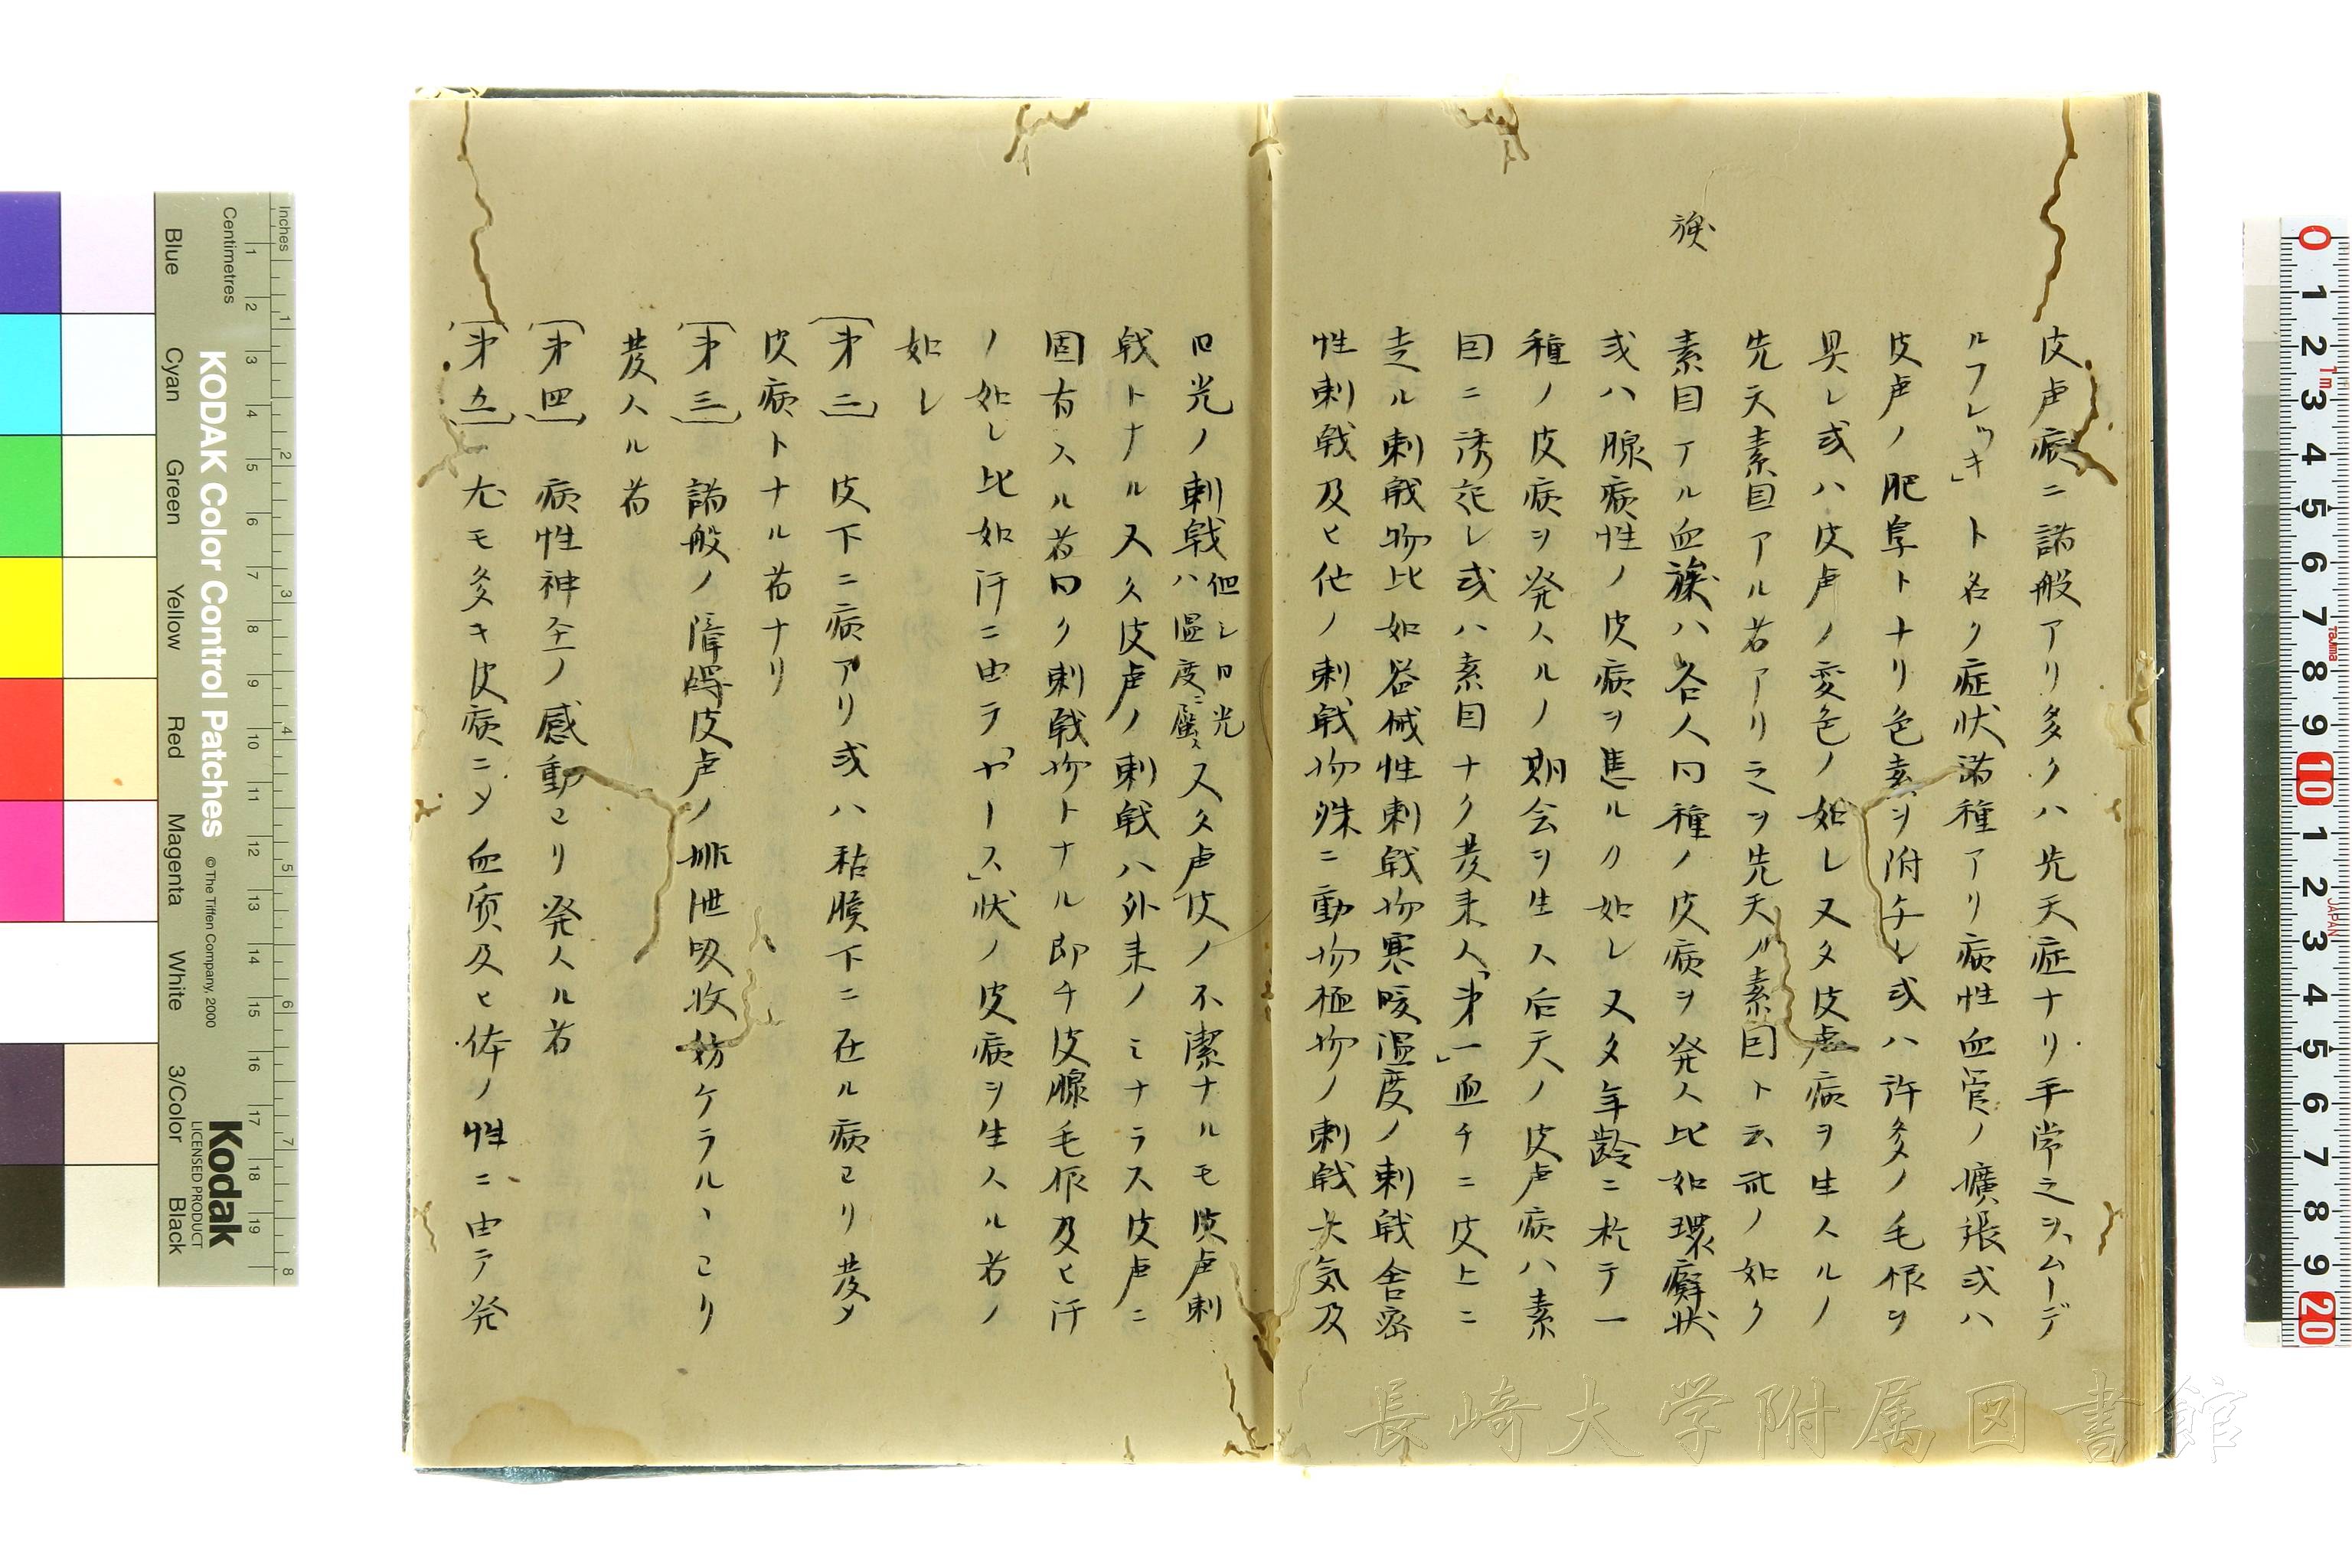 族
皮膚病ニ諸般アリ多クハ先天症ナリ平常之ヲ「ムーデ
ルフレッキ」ト名ク症状諸種アリ病性血管ノ擴張或ハ
皮膚ノ肥厚トナリ色素ヲ附与シ或ハ許多ノ毛根ヲ
具シ或ハ皮膚ノ変色ノ如シ又タ皮膚病ヲ生スルノ
先天素因アル者アリ之ヲ先天ノ素因ト云所ノ如ク
素因アル血族ハ各人同種ノ皮病ヲ発ス比如環癬状
或ハ腺病性ノ皮病ヲ患ルカ如シ又タ年齢ニ於テ一
種ノ皮病ヲ発スルノ期会ヲ生ス后天ノ皮膚病ハ素
因ニ誘起シ或ハ素因ナク発来ス「第一」直チニ皮上ニ
走ル刺戟物比如器械性刺戟物寒暖温度ノ刺戟舎密
性刺戟及ヒ他ノ刺戟物殊ニ動物植物ノ刺戟大気及
日光ノ刺戟但シ日光ハ温度ニ屬ス又タ膚皮ノ不潔ナルモ皮膚刺
戟トナル又タ皮膚ノ刺戟ハ外来ノミナラス皮膚ニ
固有スル者同ク刺戟物トナル即チ皮腺毛根及ヒ汗
ノ如シ比如汗ニ由テ「ヤース」状ノ皮病ヲ生スル者ノ
如シ
(第二) 皮下ニ病アリ或ハ粘膜下ニ在ル病ヨリ発メ
皮病トナル者ナリ
(第三) 諸般ノ障碍皮膚ノ排泄吸收妨ケラルヽヨリ
発スル者
(第四) 病性神圣ノ感動ヨリ発スル者
(第五) 尤モ多キ皮病ニメ血質及ヒ体ノ性ニ由テ発
長崎大学附属図書館
KODAK Color Control Patches
©The Tiffen Company, 2000
Kodak
LICENSED PRODUCT
Inches
Centimetres
1 2 3 4 5 6 7 8 9 10 11 12 13 14 15 16 17 18 19
1 2 3 4 5 6 7 8
Blue Cyan Green Yellow Red Magenta White 3/Color Black
0 1 2 3 4 5 6 7 8 9 10 1 2 3 4 5 6 7 8 9 20
1m
TAJIMA
JAPAN